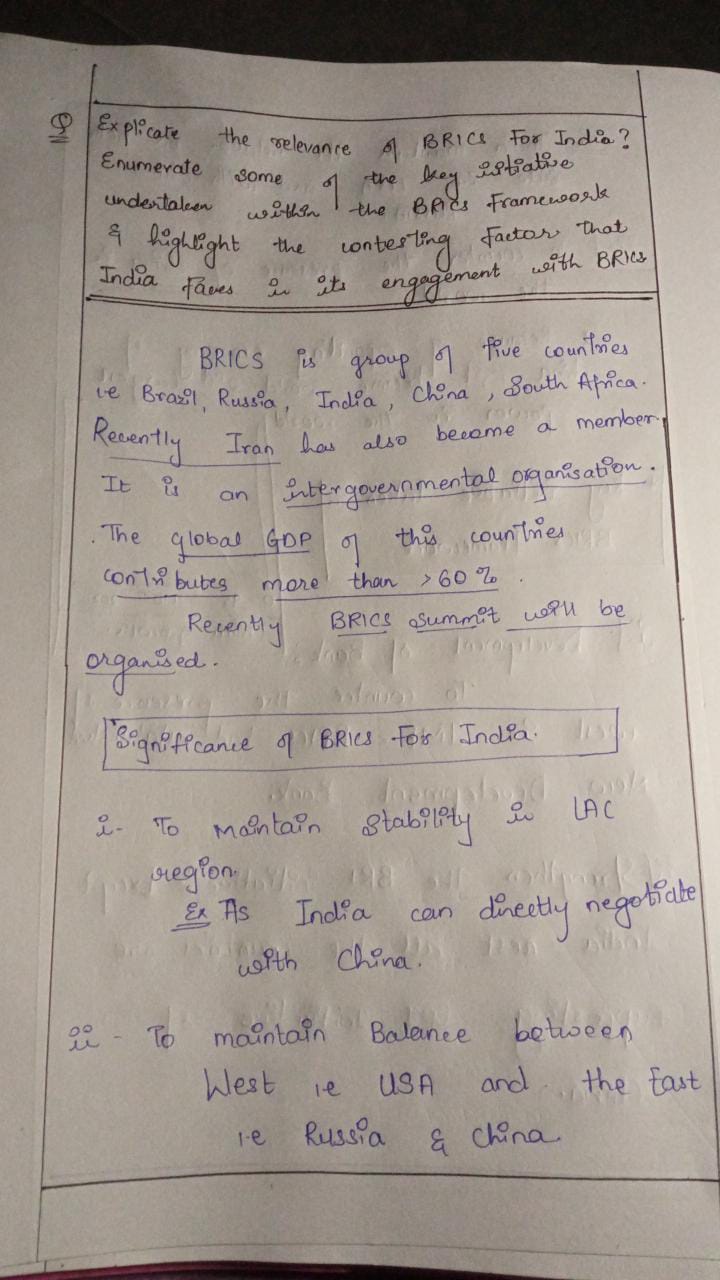 Q Explicate the relevance of BRICS For India?
Enumerate some of the key
undertaken within the BRICS Framework
& highlight the contesting Factor that
India Faces in its engagement with BRICS
BRICS is group of five countries
i.e Brazil, Russia, India, China, South Africa.
Recently Iran has also become a member.
It is an intergovernmental organisation.
. The global GDP of this countries
contributes more than >60%.
Recently BRICS summit will be
organised.
Significance of BRICS For India.
i- To maintain stability in LAC
region.
Ex As India can directly negotiate
with China.
ii - To maintain Balance between
West i.e USA and the East
i.e Russia & China.